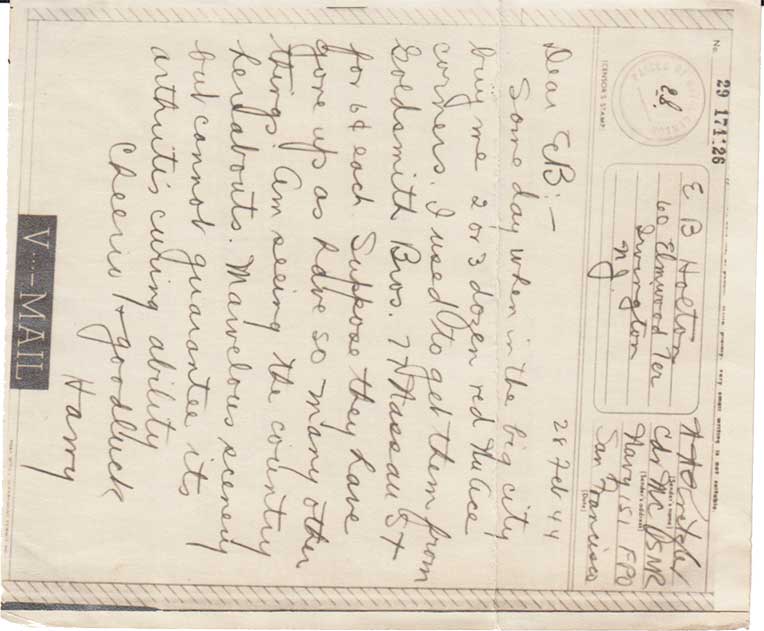 No.
29 171:26
PASSED BY
(CENSOR'S STAMP)
E B Holton
60 Elmwood Ter
Irvington
N.J.
(Sender's name)
Cdr MC USNR
(Sender's address)
Navy 151 FPO
San Francisco
(Date)
28 Feb 44
Dear EB:—
Some day when in the big city
buy me 2 or 3 dozen red NuAce
corners. I used to get them from
Goldsmith Bros. 77 Nassau St
for 6¢ each. Suppose they have
gone up as have so many other
things. Am seeing the country
hereabouts. Marvelous scenery
but cannot guarantee its
arthritis curing ability
Cheerio & good luck
Harry
V···–MAIL